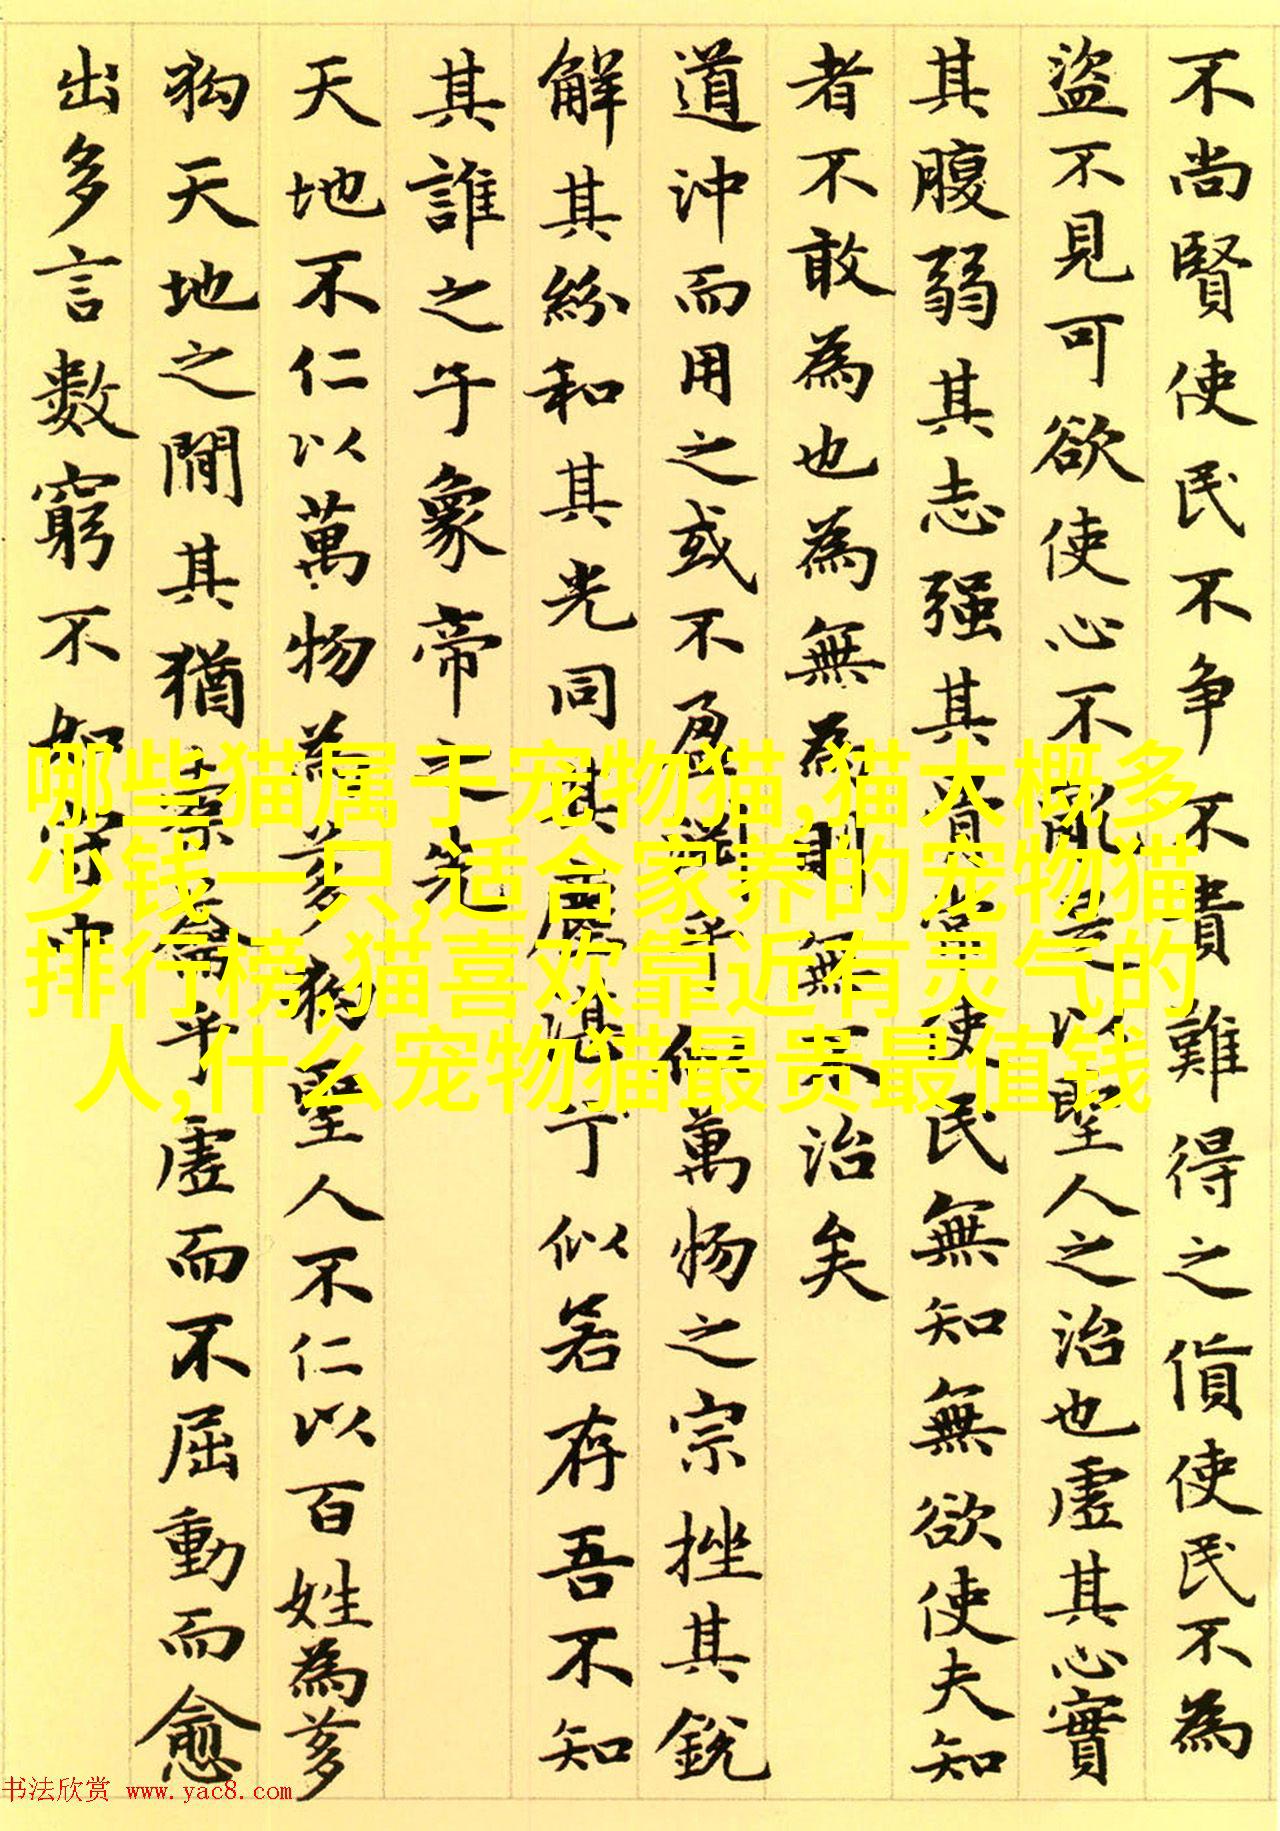 不尚賢使民不争不貴難得之貨使民不為
盜不見可欲使心不亂是以聖人之治也虛其心實
其腹弱其志强其骨常使民無知無欲使夫知
者不敢為也為無為則無不治矣
道沖而用之或不盈淵乎似萬物之宗挫其銳
解其紛和其光同其塵湛兮似若存吾不知
其誰之子象帝之先
天地不仁以萬物為芻狗聖人不仁以百姓為芻
狗天地之間其猶橐龠乎虛而不屈動而愈
出多言數窮不如守中
哪些猫属于宠物猫,猫大概多
少钱一只,适合家养的宠物猫
排行榜,猫喜欢靠近有灵气的
人,什么宠物猫最贵最值钱
书法欣赏 www.yac8.com